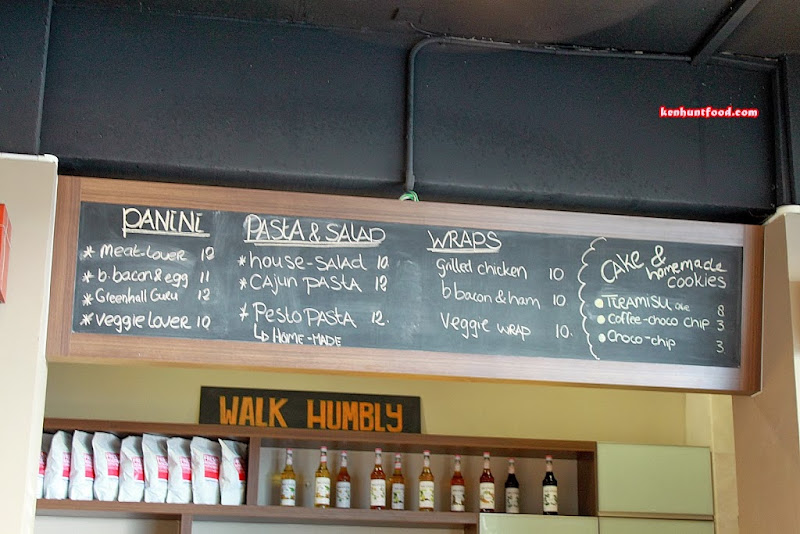 kenhuntfood.com
PANINI
* Meat-Lover 12
* b.bacon & egg 11
* Greenhall Guru 12
* Veggie lover 10
PASTA & SALAD
* house-salad 10
* CAJUN PASTA 12
* Pesto PASTA 12.
↳ HOME-MADE
WRAPS
Grilled chicken 10
b bacon & ham 10
Veggie WRAP 10.
Cake &
homemade
cookies
TERAMISU 8
Coffee-choco chip 3
Choco-chip 3
WALK HUMBLY